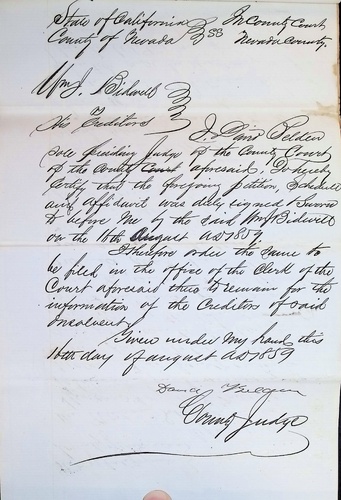 State of California } SS In County Court
County of Nevada Nevada County.
Wm J. Bidwell
vs
His Creditors } I, David Belden
sole presiding Judge of the County Court
of the County Court aforesaid, Do hereby
certify that the foregoing petition, schedule
and affidavit was duly signed & sworn
to before me by the said Wm J Bidwell
on the 16th August AD 1859
I therefore order the same to
be filed in the office of the Clerk of the
Court aforesaid thus to remain for the
information of the Creditors of said
Insolvent
Given under my hand this
16th day of August AD 1859
David Belden
County Judge